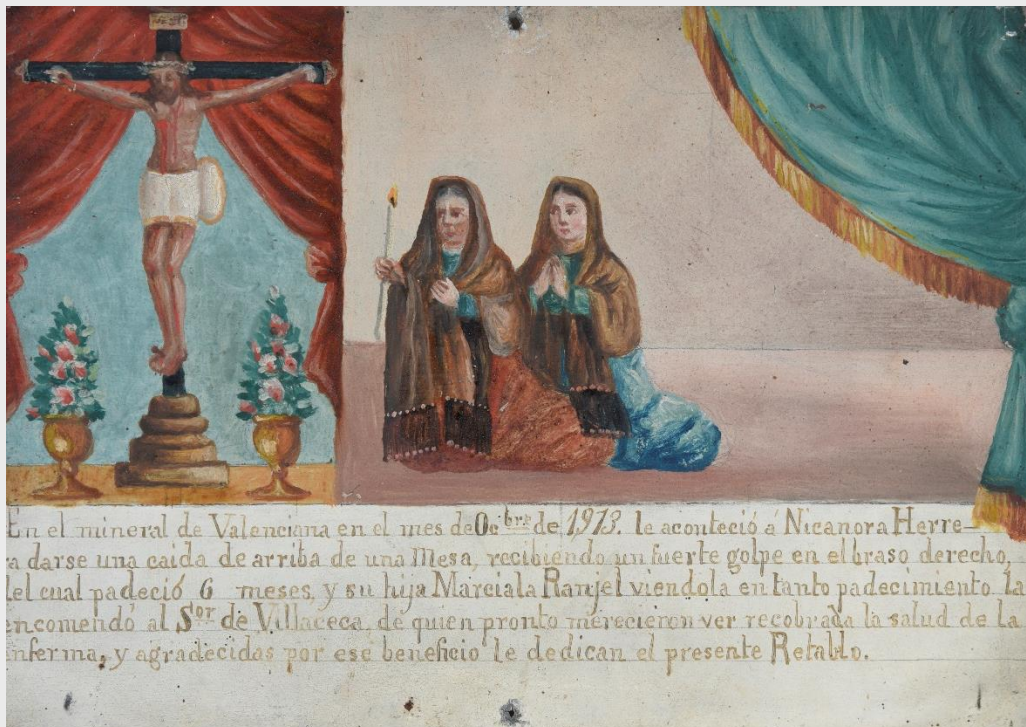 En el mineral de Valenciana en el mes de Ocbre de 1913. le aconteció á Nicanora Herre-
ra darse una caida de arriba de una Mesa, recibiendo un fuerte golpe en el braso derecho,
del cual padeció 6 meses, y su hija Marciala Ranjel viendola en tanto padecimiento la
encomendó al Sor de Villaceca, de quien pronto merecieron ver recobrada la salud de la
enferma, y agradecidas por ese beneficio le dedican el presente Retablo.